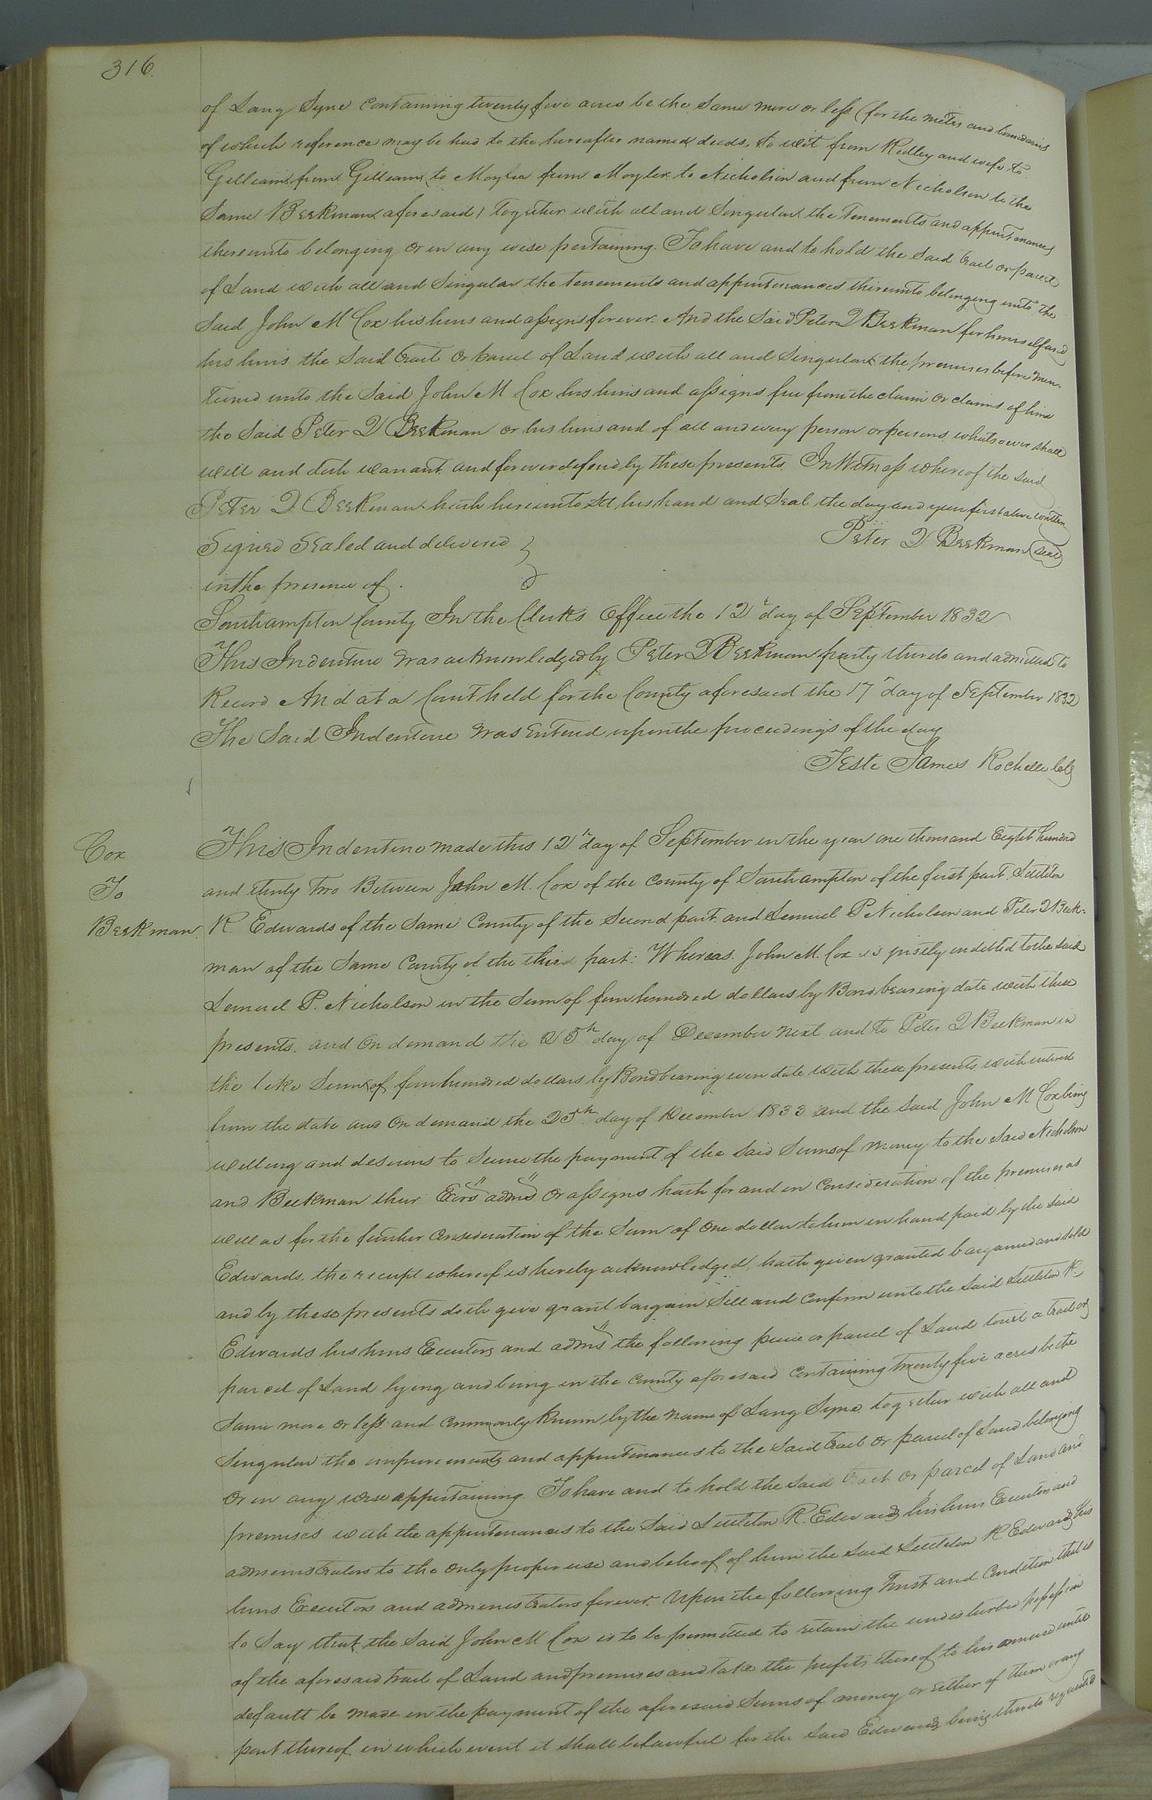 316.
of Lang Syne containing twenty five acres be the same more or less (for the meters and boundaries
of which reference may be had to the hereafter named deeds, to wit from Ridley and wife to
Gilliam, from Gilliam, to Moyler from Moyler to Nicholson and from Nicholson to the
Same Beekman aforesaid) together with all and Singular the Tenements and appurtenances
thereunto belonging or in any wise pertaining. To have and to hold the said tract or parcel
of Land with all and Singular the tenements and appurtenances thereunto belonging unto the
said John M Cox his heirs and assigns forever. And the said Peter D Beekman for himself and
his heirs the said tract or parcel of Land with all and Singular the premises before men-
tioned unto the said John M Cox his heirs and assigns free from the claim or claims of him
the said Peter D Beekman or his heirs and of all and every person or persons whatsoever shall
will and doth warrant and forever defend by these presents In Witness whereof the said
Peter D Beekman hath hereunto set his hand and Seal the day and year first above written
Peter D Beekman (seal)
Signed Sealed and delivered
in the presence of.
Southampton County In the Clerks Office the 12th day of September 1832
This Indenture was acknowledged by Peter D Beekman party thereto and admitted to
Record And at a Court held for the County aforesaid the 17th day of September 1832
The Said Indenture was Entered upon the proceedings of the day
Teste James Rochelle clk
Cox
To
Beekman
This Indenture made this 12th day of September in the year one thousand Eight hundred
and thirty two Between John M. Cox of the County of Southampton of the first part Littleton
R. Edwards of the Same County of the Second part and Lemuel P Nicholson and Peter D Beek-
man of the Same County of the third part: Whereas John M. Cox is justly indebted to the said
Lemuel P. Nicholson in the Sum of four hundred dollars by Bond bearing date with these
presents, and on demand the 25th day of December next and to Peter D Beekman in
the like Sum of four hundred dollars by Bond bearing even date with these presents with interest
from the date and on demand the 25th day of December 1833 and the said John M Cox being
willing and desirous to secure the payment of the said Sums of money to the said Nicholson
and Beekman their Exrs adms or assigns hath for and in Consideration of the premises as
well as for the further consideration of the Sum of one dollar to him in hand paid by the said
Edwards, the receipt whereof is hereby acknowledged, hath given granted bargained and sold
and by these presents doth give grant bargain Sell and Confirm unto the said Littleton R.
Edwards his heirs Executors and adms the following piece or parcel of Land towit a tract or
parcel of Land lying and being in the county aforesaid containing twenty five acres be the
Same more or less and commonly known by the name of Lang Syne, together with all and
Singular the improvements and appurtenances to the said tract or parcel of Land belonging
or in any wise appertaining. To have and to hold the said tract or parcel of Land and
premises with the appurtenances to the said Littleton R. Edwards his heirs Executors and
administrators to the only proper use and behoof of him the said Littleton R Edwards his
heirs Executors and administrators forever. Upon the following Trust and Condition that is
to say that the said John M Cox is to be permitted to retain the undisturbed possession
of the aforesaid tract of Land and premises and take the profits thereof to his own use until
default be made in the payment of the aforesaid Sums of money or either of them or any
part thereof in which event it shall be lawful for the said Edwards being thereto requested